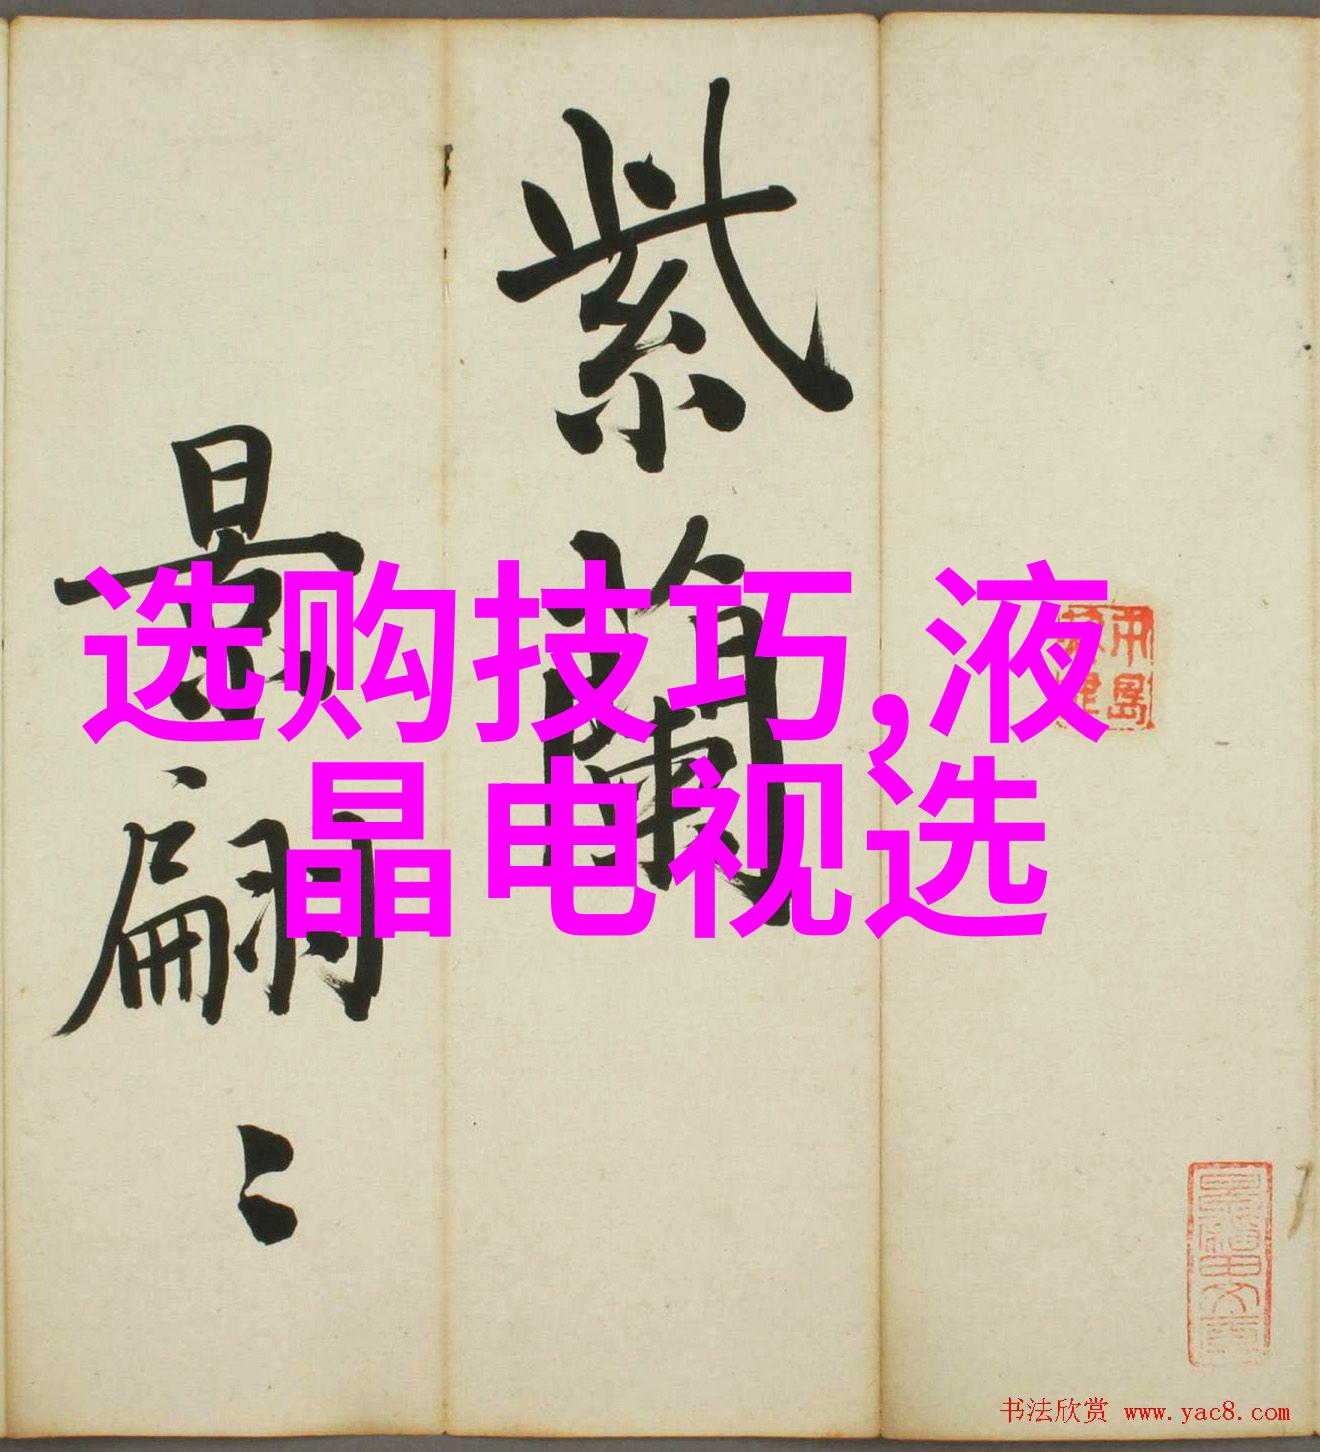 紫蘭
景翩〻
选购技巧,液
晶电视选
书法欣赏 www.yac8.com